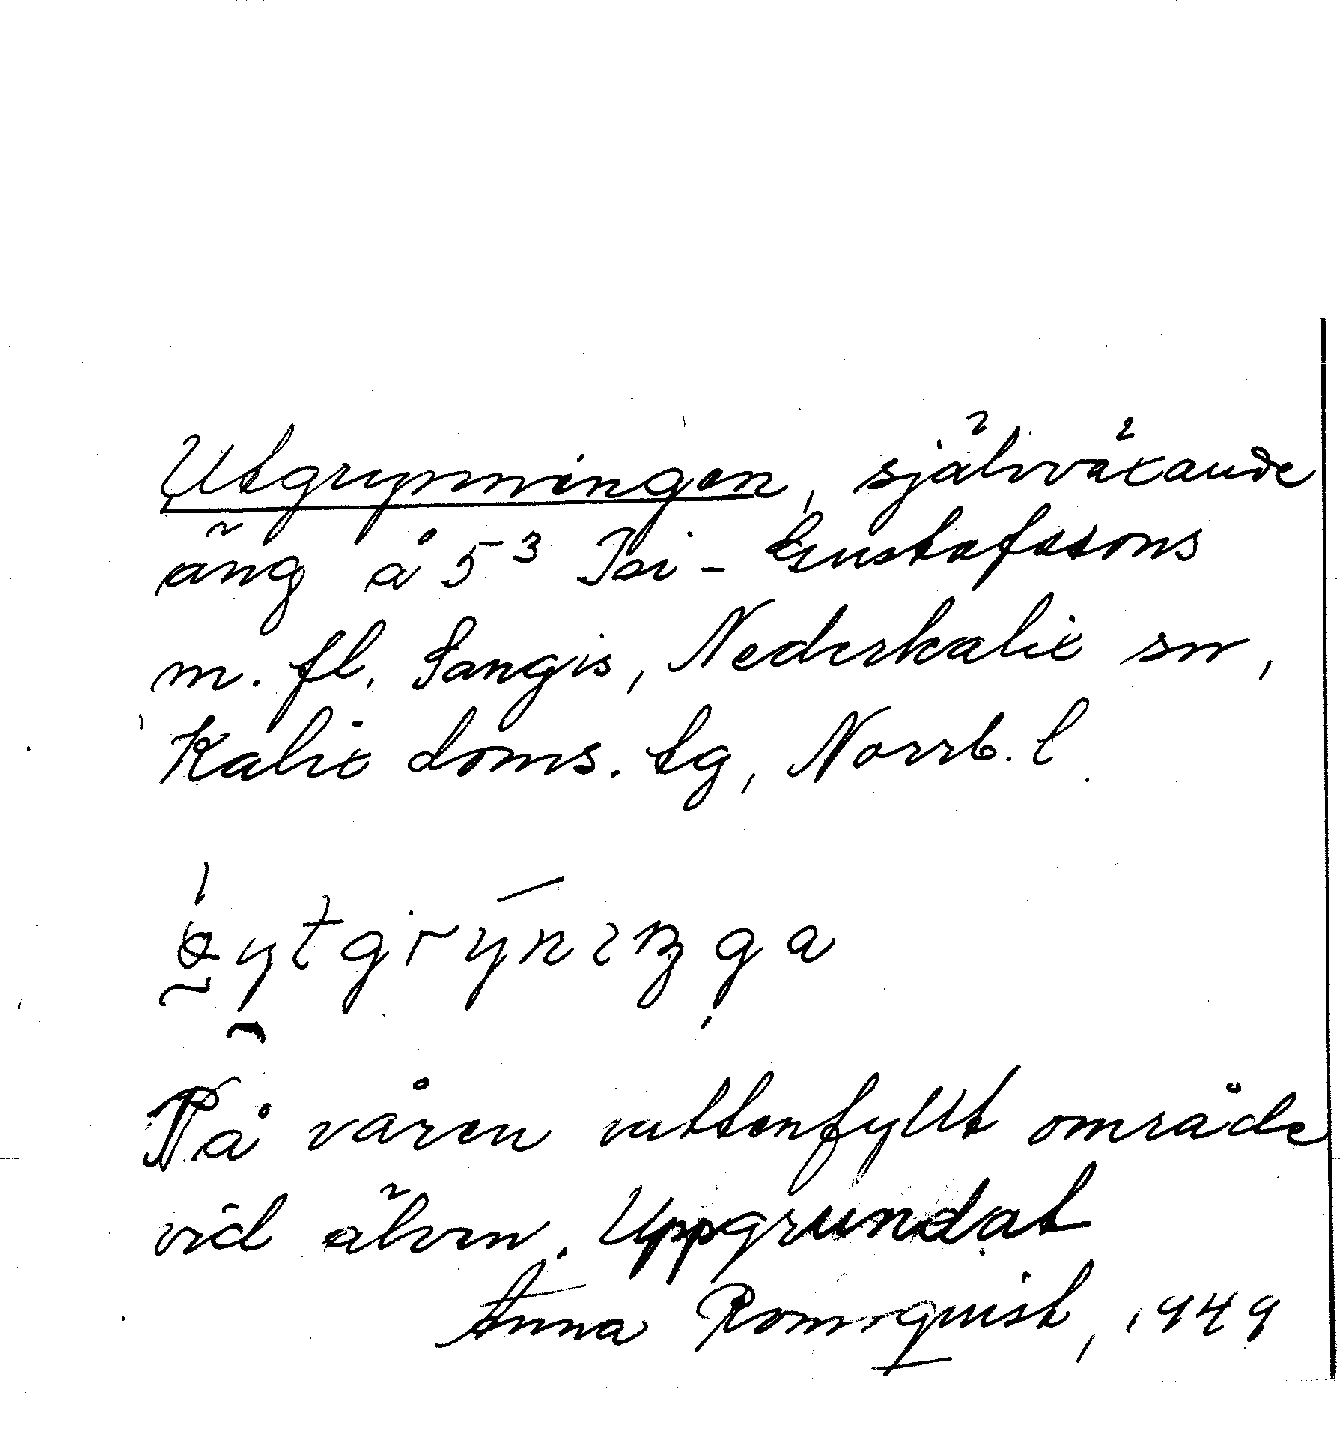 Utgrynningen, självväxande
äng å 5³ Pei-Gustafssons
m. fl. Sangis, Nederkalix sn,
Kalix doms. tg, Norrb. l.
På våren vattenfyllt område
vid älven. Uppgrundat
Anna Romqvist, 1949